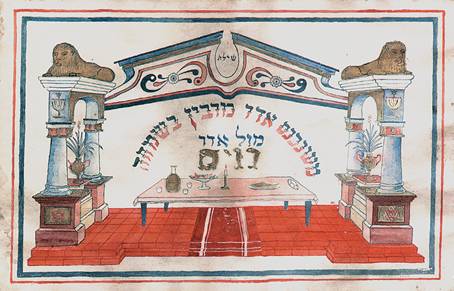 משנכנס אדר מרבין בשמחה
מזל אדר
דגים